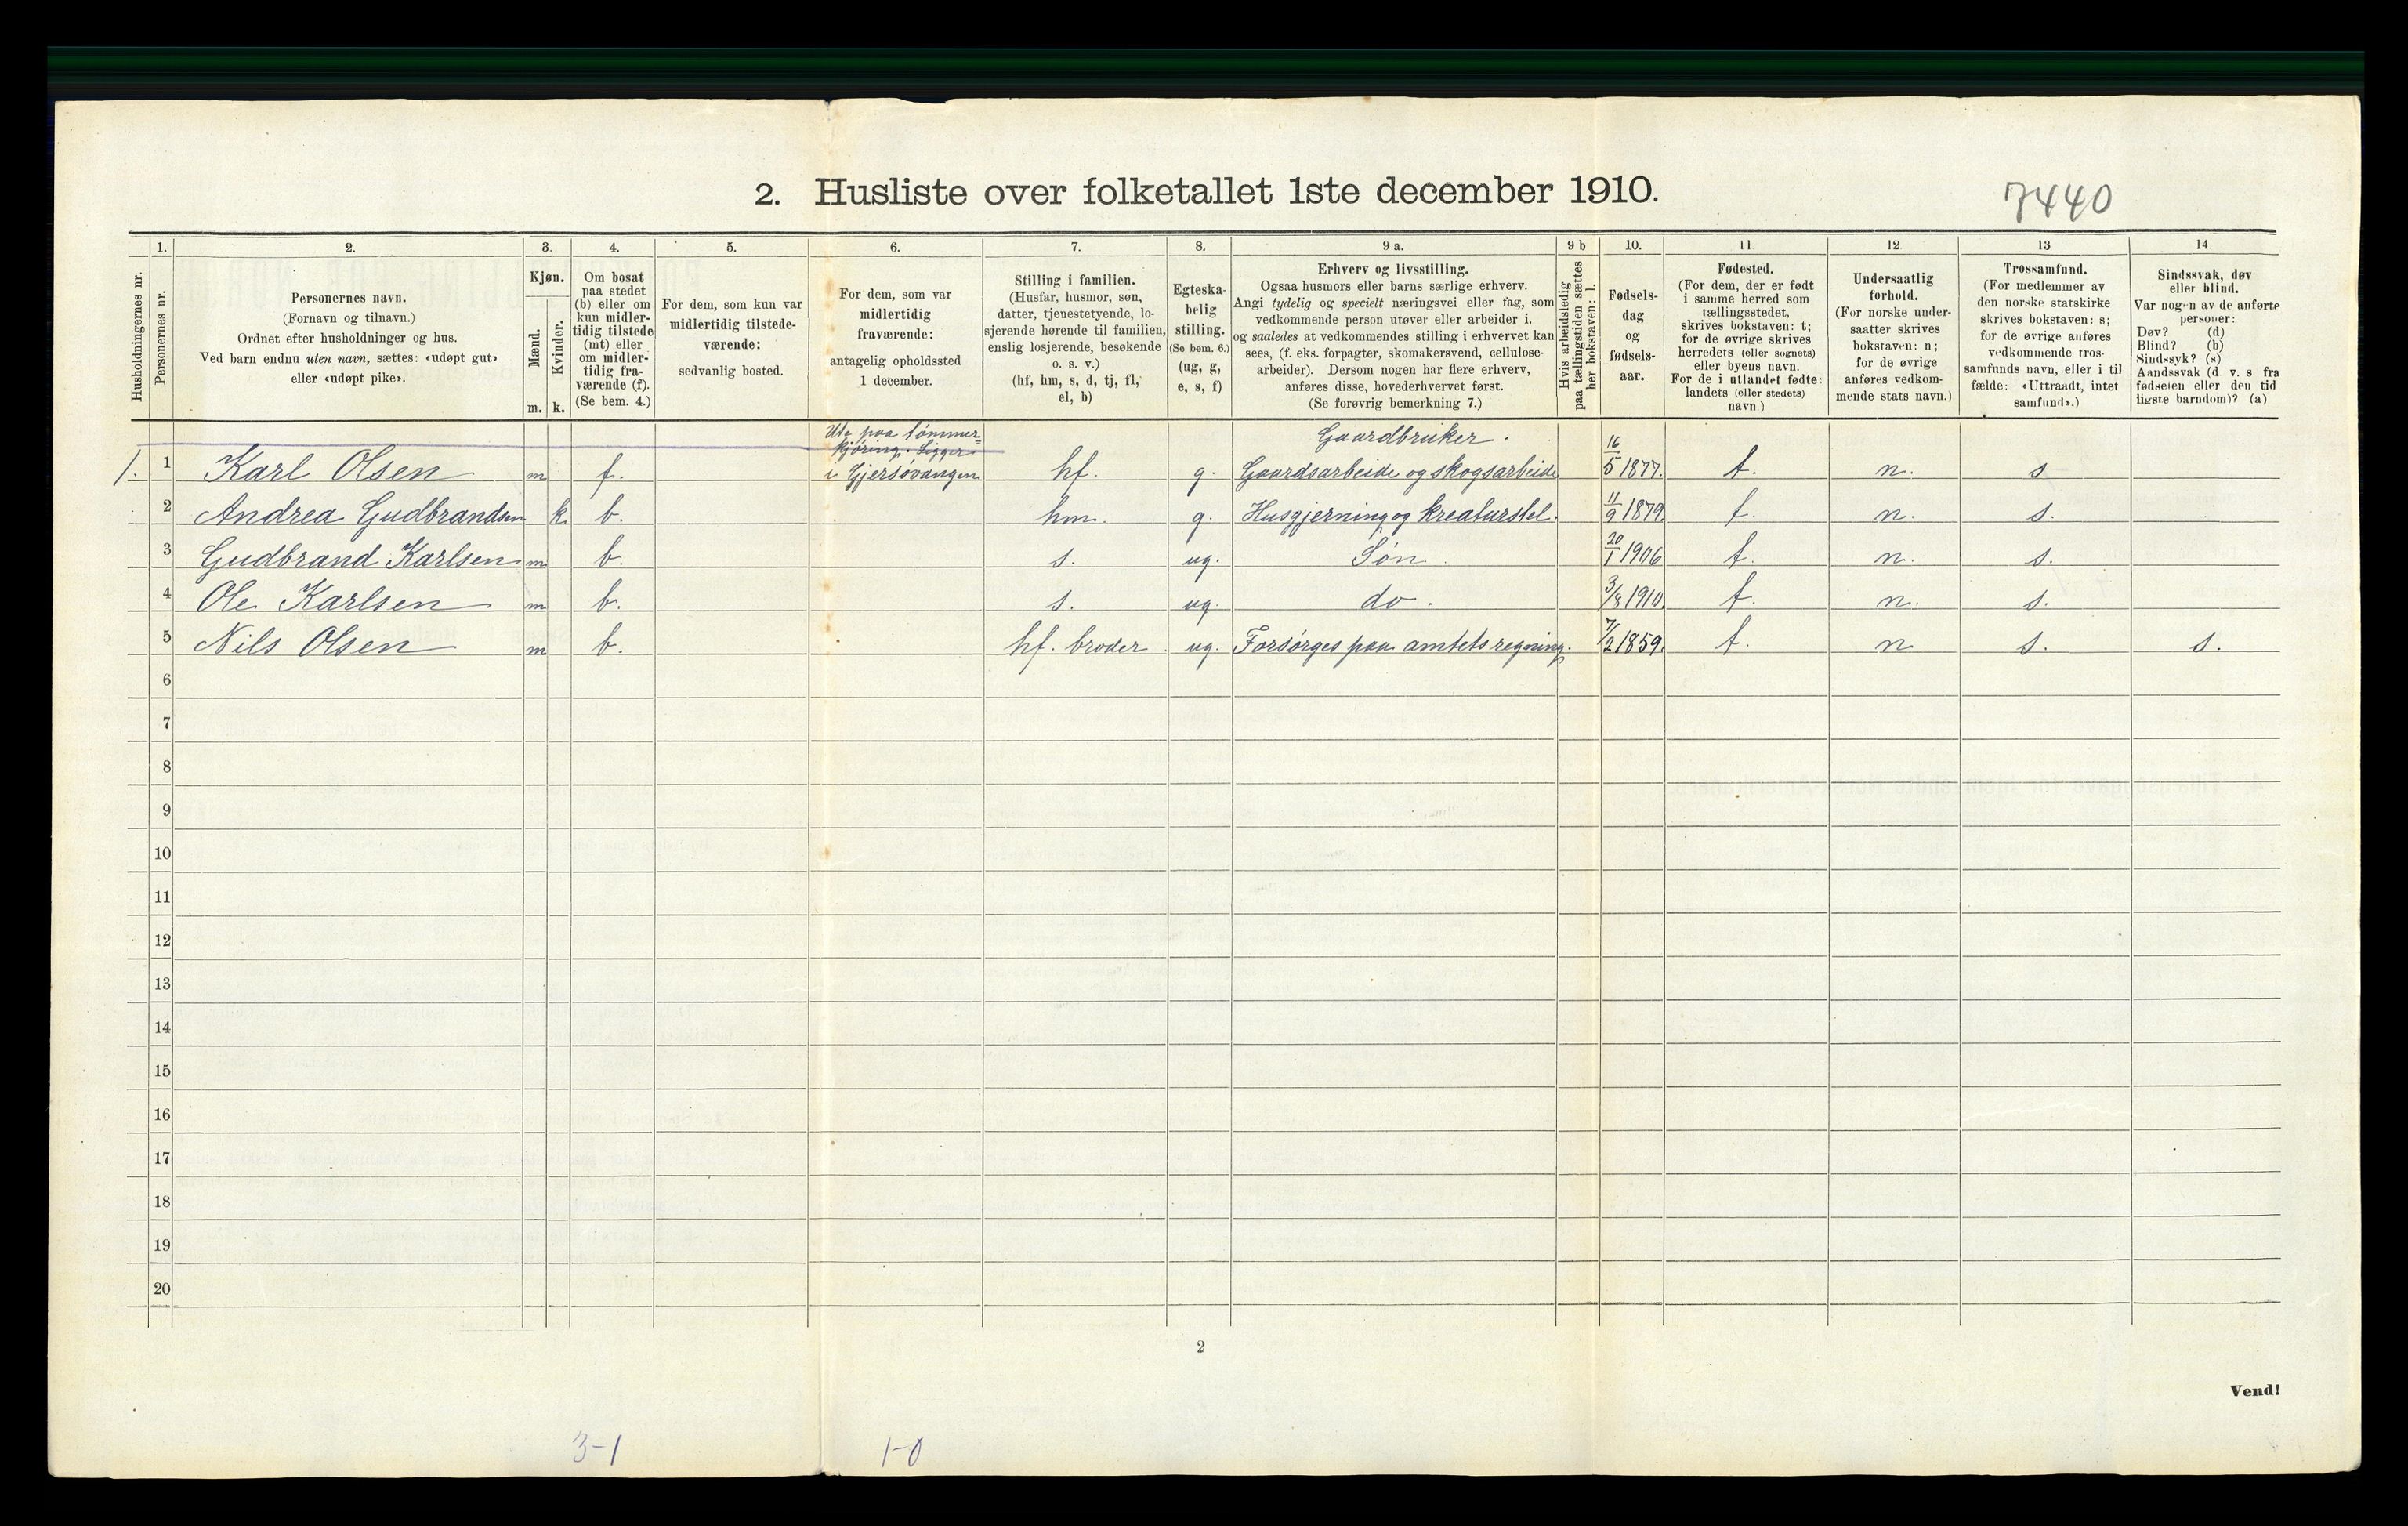 2. Husliste over folketallet 1ste december 1910.
7440
1. 2. 3. 4. 5. 6. 7. 8. 9 a. 9 b 10. 11. 12. 13 14.
Husholdningernes nr.
Personernes nr.
Personernes navn.
(Fornavn og tilnavn.)
Ordnet efter husholdninger og hus.
Ved barn endnu uten navn, sættes: «udøpt gut»
eller «udøpt pike».
Kjøn.
Mænd.
Kvinder.
m. k.
Om bosat
paa stedet
(b) eller om
kun midler-
tidig tilstede
(mt) eller
om midler-
tidig fra-
værende (f).
(Se bem. 4.)
For dem, som kun var
midlertidig tilstede-
værende:
sedvanlig bosted.
For dem, som var
midlertidig
fraværende:
antagelig opholdssted
1 december.
Stilling i familien.
(Husfar, husmor, søn,
datter, tjenestetyende, lo-
sjerende hørende til familien,
enslig losjerende, besøkende
o. s. v.)
(hf, hm, s, d, tj, fl,
el, b)
Egteska-
belig
stilling.
(Se bem. 6.)
(ug, g,
e, s, f)
Erhverv og livsstilling.
Ogsaa husmors eller barns særlige erhverv.
Angi tydelig og specielt næringsvei eller fag, som
vedkommende person utøver eller arbeider i,
og saaledes at vedkommendes stilling i erhvervet kan
sees, (f. eks. forpagter, skomakersvend, cellulose-
arbeider). Dersom nogen har flere erhverv,
anføres disse, hovederhvervet først.
(Se forøvrig bemerkning 7.)
Hvis arbeidsledig
paa tællingstiden sættes
her bokstaven: l.
Fødsels-
dag
og
fødsels-
aar.
Fødested.
(For dem, der er født
i samme herred som
tællingsstedet,
skrives bokstaven: t;
for de øvrige skrives
herredets (eller sognets)
eller byens navn.
For de i utlandet fødte:
landets (eller stedets)
navn.)
Undersaatlig
forhold.
(For norske under-
saatter skrives
bokstaven: n;
for de øvrige
anføres vedkom-
mende stats navn.)
Trossamfund.
(For medlemmer av
den norske statskirke
skrives bokstaven: s;
for de øvrige anføres
vedkommende tros-
samfunds navn, eller i til
fælde: «Uttraadt, intet
samfund».)
Sindssvak, døv
eller blind.
Var nogen av de anførte
personer:
Døv? (d)
Blind? (b)
Sindssyk? (s)
Aandssvak (d. v. s. fra
fødselen eller den tid
ligste barndom)? (a)
Ute paa tømmer=
kjøring. Ligger
Gaardbruker.
1. 1 Karl Olsen m f. i Gjersøvangen hf. g. Gaardsarbeide og skogsarbeide 16/5 1877. t. n. s
2 Andrea Gudbrandsen k. b. hm. g. Husgjerning og kreaturstel. 11/9 1879. t. n. s.
3 Gudbrand Karlsen m b. s. ug. Søn. 20/1 1906 t. n. s.
4 Ole Karlsen m b. s. ug. do. 3/8 1910. t. n. s.
5 Nils Olsen m b. hf. broder ug. Forsørges paa amtets regning. 7/2 1859. t. n s. s.
6
7
8
9
10
11
12
13
14
15
16
17
18
19
20
2
Vend!
3-1 1-0